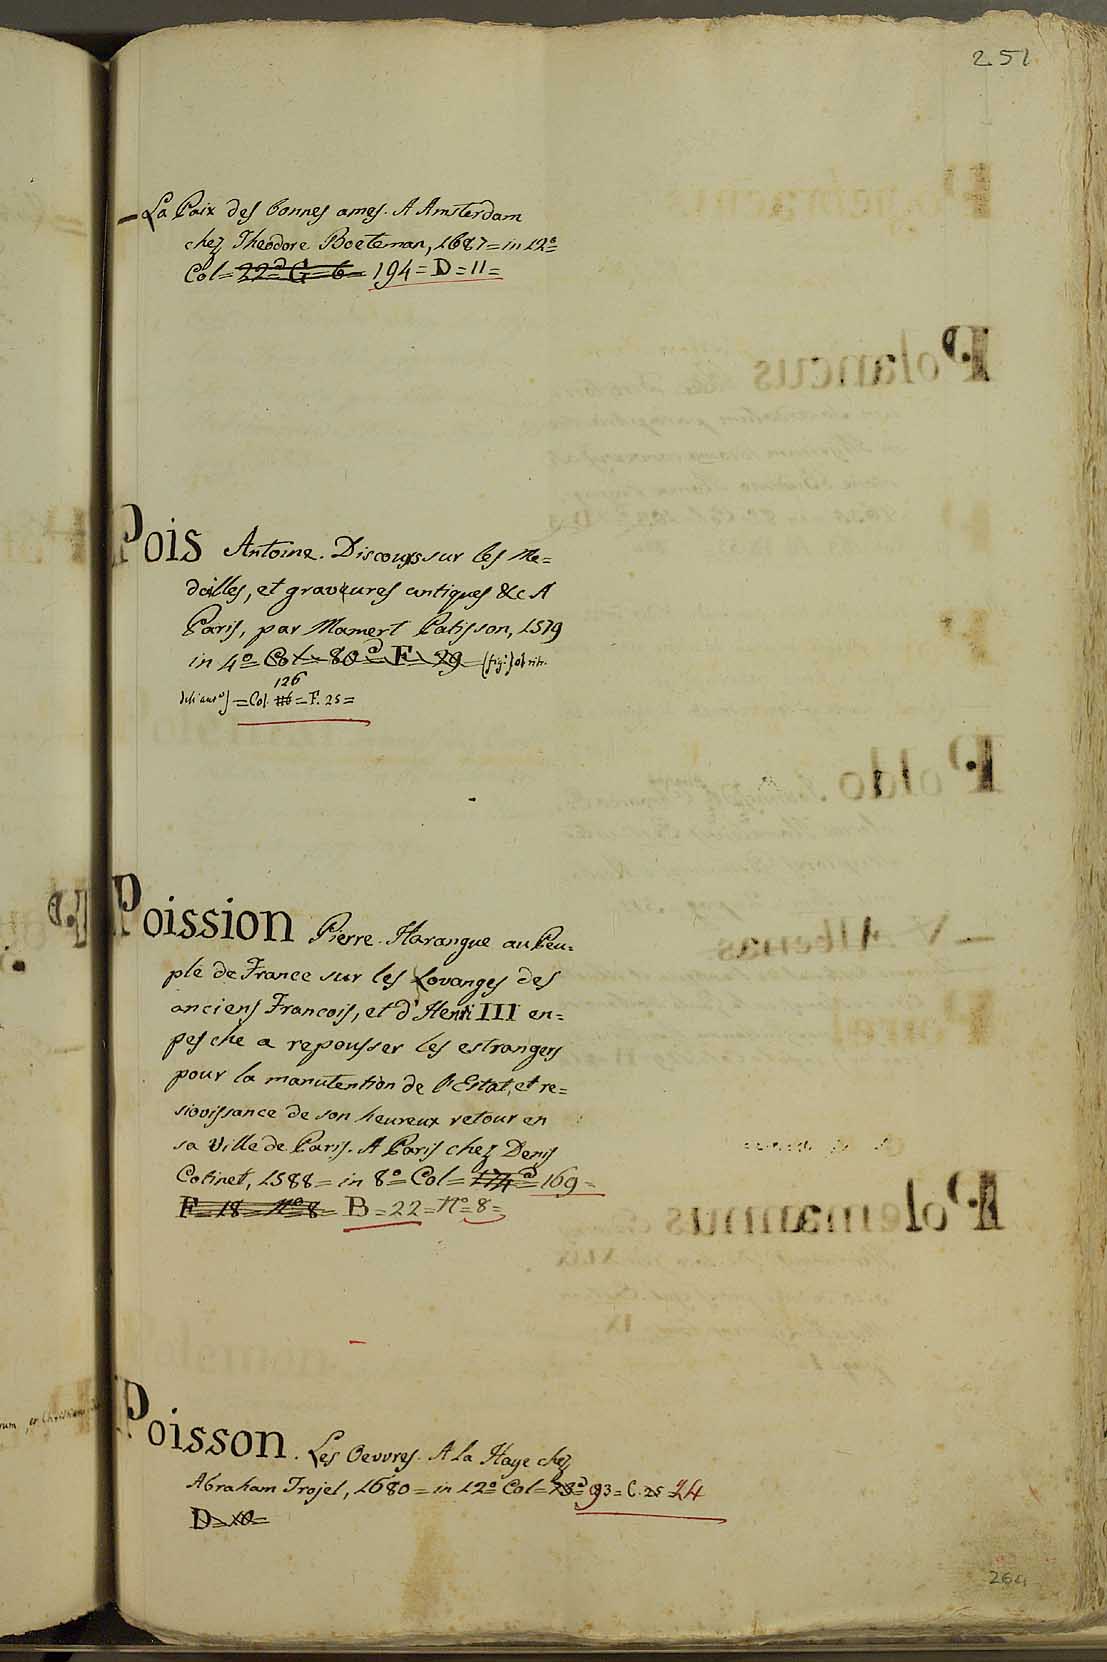 251
— La Paix des bonnes ames. A Amsterdam
chez Theodore Boeteman, 1687 = in 12º =
Col = 22ª G = 6 = 194 = D = 11 =
Pois Antoine. Discours sur les Me=
dailles, et graveures antiques &c A
Paris, par Mamert Patisson, 1579
in 4º = Col = 80ª = F = 29 = (fig.)
126
= Col. = F. 25 =
Poission Pierre. Harangue au Peu=
ple de France sur les Lovanges des
anciens Francois, et d'Henri III en=
pesche a repousser les estrangers
pour la manutention de l'Estat, et re=
siovissance de son heureux retour en
sa Ville de Paris. A Paris chez Denis
Cotinet, 1588 = in 8º = Col = 174ª = 169 =
F = 18 = Nº 8 = B = 22 = Nº = 8 =
Poisson. Les Oevvres. A la Haye chez
Abraham Trojel, 1680 = in 12º Col = 93 = C. 25 24
D = 10 =
264
Polancus
Poldo
— V. Albenas
Polemannus